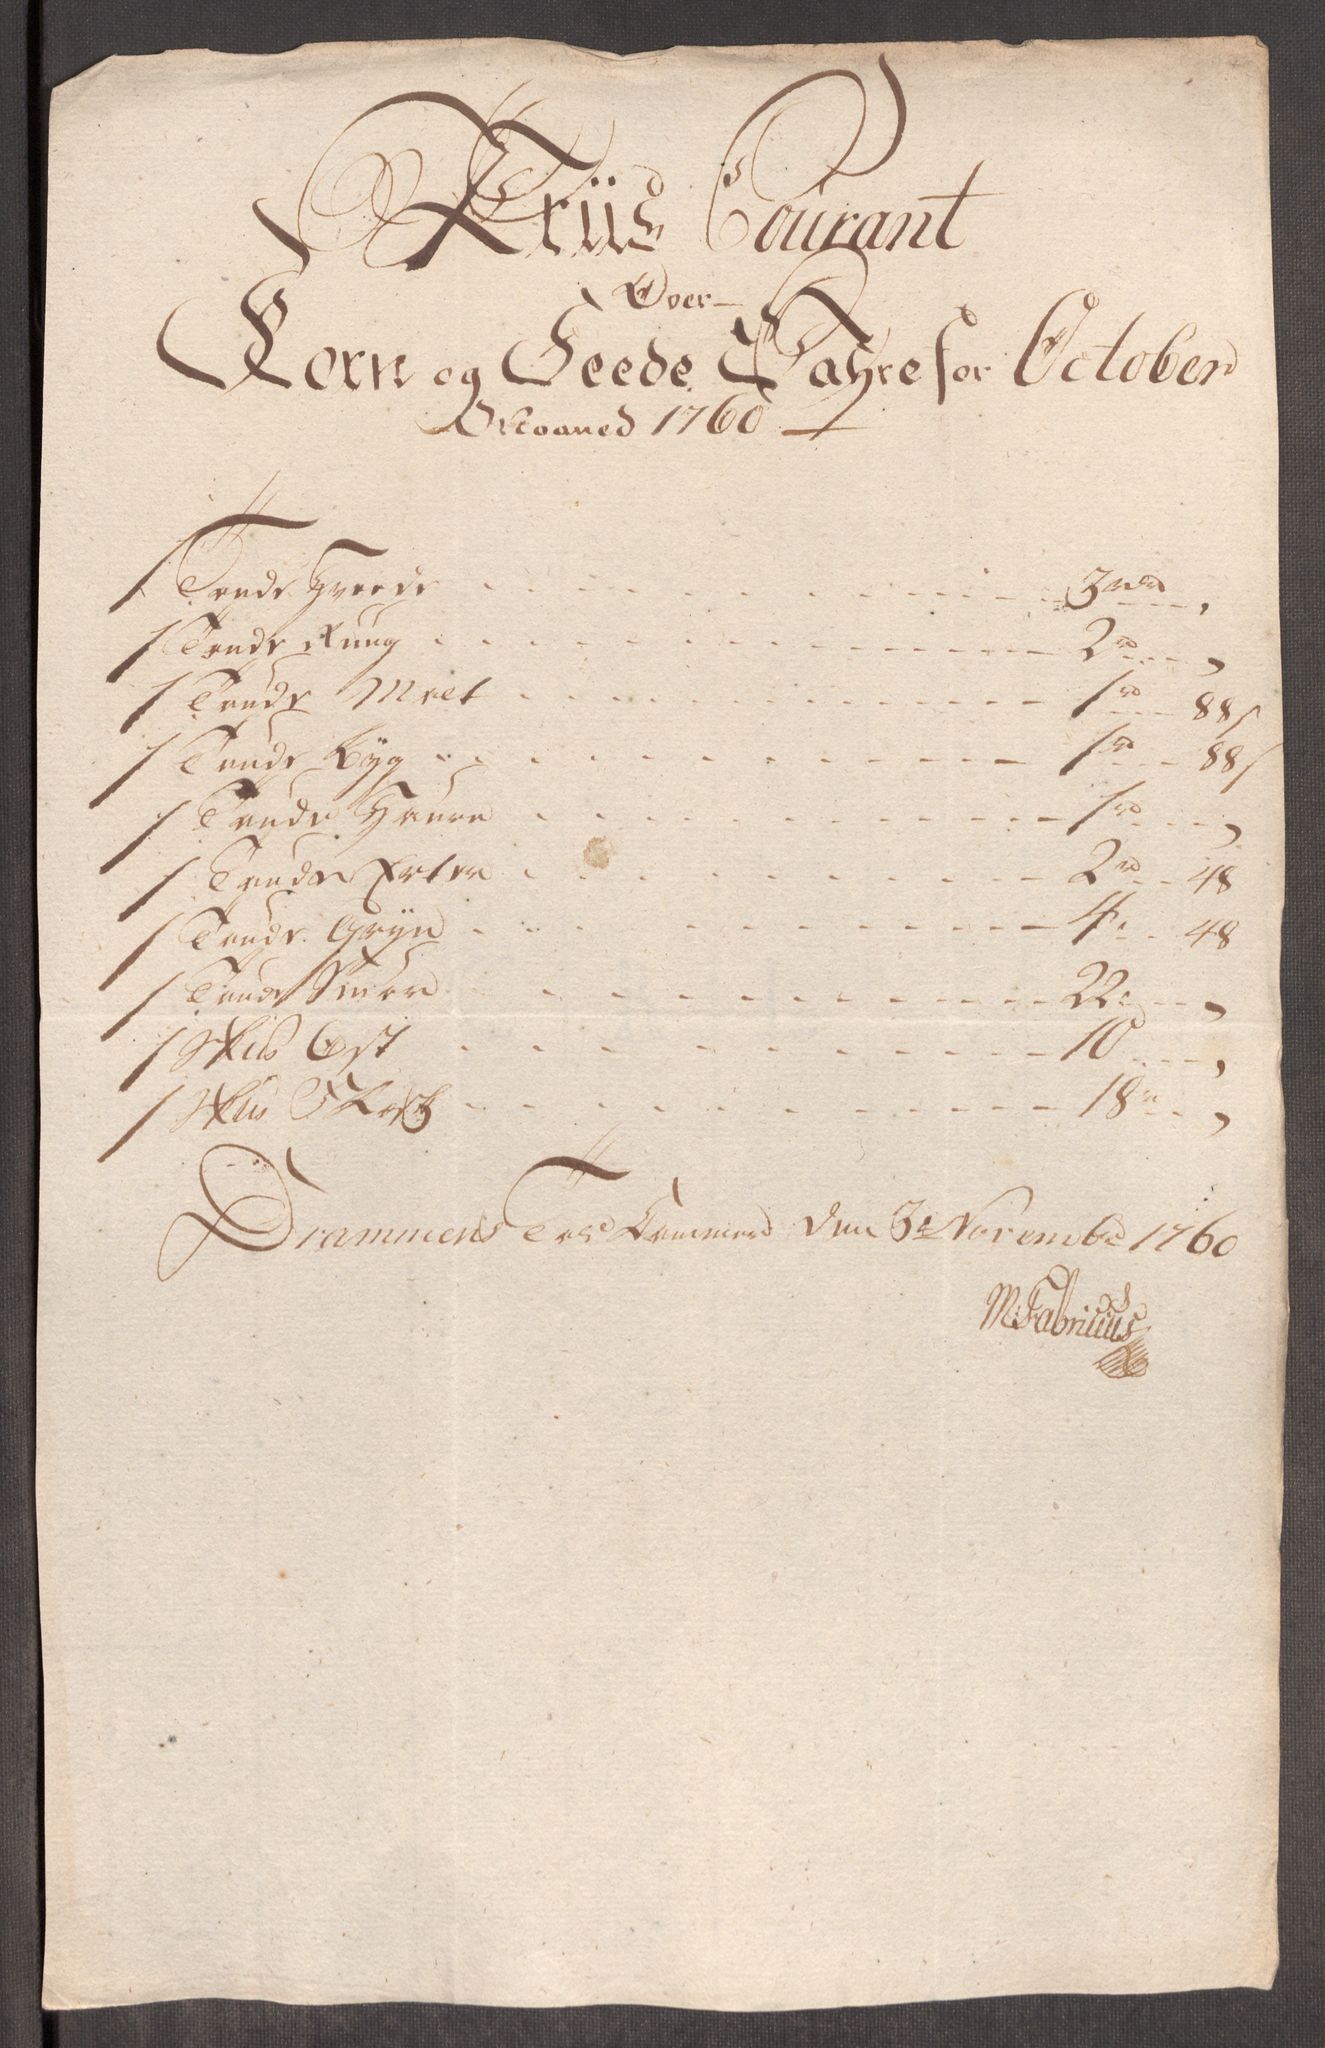 Priis Courant
Over
Korn og Feede Wahre for October
Maaned 1760
1 Tønde Hvede 3 rd
1 Tønde Rug 2 rd
1 Tønde Malt 1 rd 88 s
1 Tønde Byg 1 rd 88 s
1 Tønde Haure 1 rd
1 Tønde Erter 2 rd 48
1 Tønde Gryn 4 48
1 Tønde Smør 22
1 Sk℔ Ost 10
1 Sk℔ Flesk 18
Drammens Told Kammer den 3e Novembr 1760
M: Fabritius